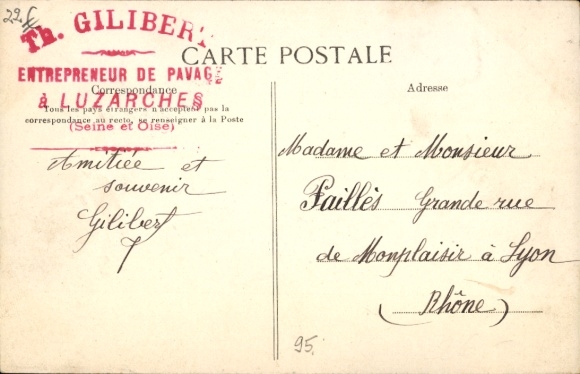 22 €
Th. GILIBERT
ENTREPRENEUR DE PAVAGE
à LUZARCHES
(Seine et Oise)
CARTE POSTALE
Correspondance
Tous les pays étrangers n'acceptent pas la
correspondance au recto, se renseigner à la Poste
Amitiée et
souvenir
Gilibert
Adresse
Madame et Monsieur
Faillès Grande rue
de Monplaisir à Lyon
(Rhône)
95.